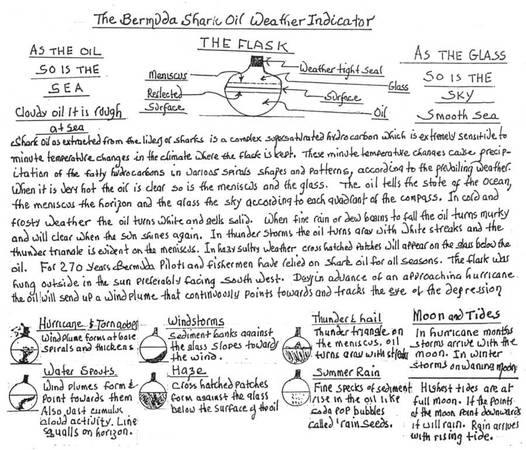 The Bermuda Shark Oil Weather Indicator
AS THE OIL
SO IS THE
SEA
Cloudy oil It is rough
at sea
THE FLASK
Meniscus
Reflected
Surface
Weather tight seal
Glass
Surface
Oil
AS THE GLASS
SO IS THE
SKY
Smooth Sea
Shark Oil as extracted from the livers of sharks is a complex supersaturated hydrocarbon which is extremely sensitive to
minute temperature changes in the climate where the flask is kept. These minute temperature changes cause precip-
itation of the fatty hydrocarbons in various spirals shapes and patterns, according to the prevailing weather.
When it is very hot the oil is clear so is the meniscus and the glass. The oil tells the state of the ocean,
the meniscus the horizon and the glass the sky according to each quadrant of the compass. In cold and
frosty weather the oil turns white and gells solid. When fine rain or dew begins to fall the oil turns murky
and will clear when the sun shines again. In thunder storms the oil turns gray with white streaks and the
thunder triangle is evident on the meniscus. In hazy sultry weather cross hatched patches will appear on the glass below the
oil. For 270 years Bermuda Pilots and fishermen have relied on shark oil for all seasons. The flask was
hung outside in the sun preferably facing South West. Days in advance of an approaching hurricane
the oil will send up a wind plume that continuously points towards and tracks the eye of the depression
Hurricane & Tornadoes
Wind plume forms at base
spirals and thickens.
Windstorms
Sediment banks against
the glass slopes toward
the wind.
Thunder & hail
Thunder triangle on
the meniscus. Oil
turns gray with streaks
Moon and Tides
In hurricane months
storms arrive with the
moon. In winter
storms on waning moon
Water Spouts
Wind plumes form &
point towards them
Also vast cumulus
cloud activity. Line
squalls on horizon.
Haze
Cross hatched patches
form against the glass
below the surface of the oil
Summer Rain
Fine specks of sediment
rise in the oil like
soda pop bubbles
called 'rain seeds.
Highest tides are at
full moon. If the points
of the moon point downwards
it will rain. Rain arrives
with rising tide.